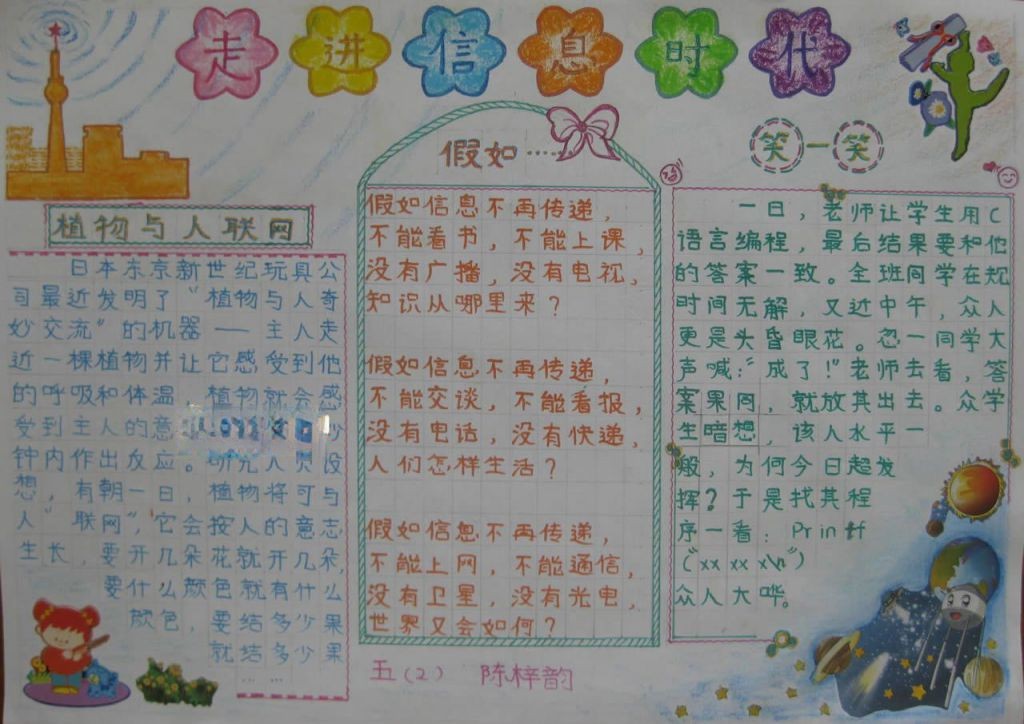 走进信息时代
植物与人联网
日本东京新世纪玩具公
司最近发明了“植物与人奇
妙交流”的机器——主人走
近一棵植物并让它感受到他
的呼吸和体温,植物就会感
受到主人的意
钟内作出反应。研究人员设
想,有朝一日,植物将可与
人“联网”,它会按人的意志
生长,要开几朵花就开几朵,
要什么颜色就有什么
颜色,要结多少果
就结多少果
……
假如……
假如信息不再传递,
不能看书,不能上课,
没有广播,没有电视,
知识从哪里来?
假如信息不再传递,
不能交谈,不能看报,
没有电话,没有快递,
人们怎样生活?
假如信息不再传递,
不能上网,不能通信,
没有卫星,没有光电,
世界又会如何?
五(2) 陈梓韵
笑一笑
一日,老师让学生用C
语言编程,最后结果要和他
的答案一致。全班同学在规
时间无解,又近中午,众人
更是头昏眼花。忽一同学大
声喊:“成了!”老师去看,答
案果同,就放其出去。众学
生暗想,该人水平一
般,为何今日超发
挥?于是找其程
序一看:Printf
(“xx xx x\n”)
众人大哗。